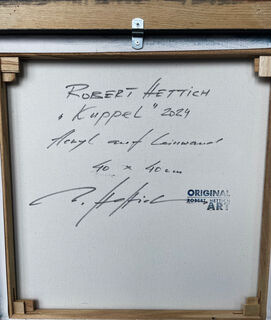 ROBERT HETTICH
„Kuppel" 2024
Acryl auf Leinwand
40 x 40 cm
R. Hettich
ORIGINAL
ROBERT HETTICH
ART